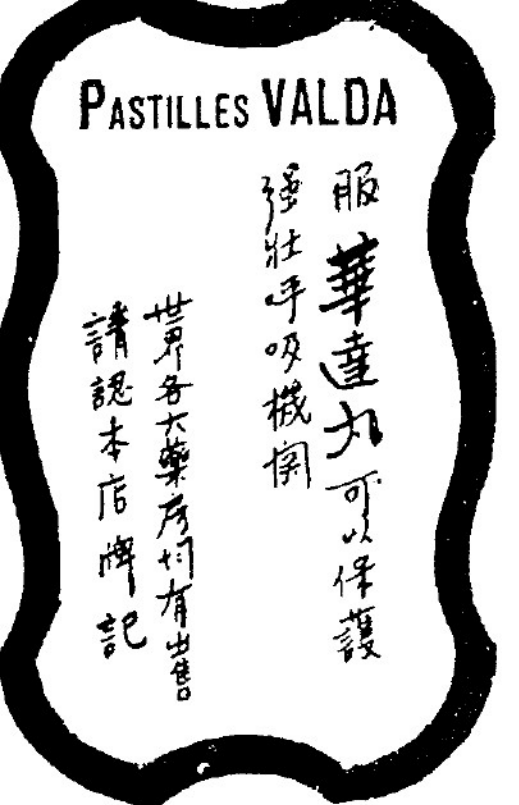 PASTILLES VALDA
服華達丸可以保護
强壯呼吸機関
世界各大藥房均有出售
請認本店牌記